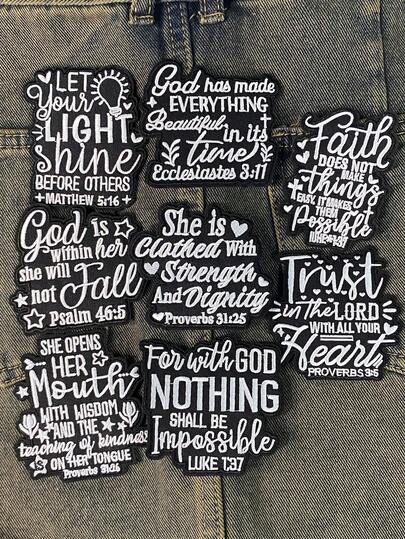 LET
Your
LIGHT
Shine
BEFORE OTHERS
MATTHEW 5:16
God has made
EVERYTHING
Beautiful
in its
time
Ecclesiastes 3:11
Faith
DOES NOT
MAKE
things
EASY, IT MAKES
THEM
Possible
LUKE 1:37
God is
within her
she will
not Fall
Psalm 46:5
She is
Clothed With
Strength
And Dignity
Proverbs 31:25
Trust
in the LORD
WITH ALL YOUR
Heart
PROVERBS 3:5
SHE OPENS
HER
Mouth
WITH WISDOM
AND THE
teaching of kindness
IS
ON HER TONGUE
Proverbs 31:26
For with GOD
NOTHING
SHALL BE
Impossible
LUKE 1:37